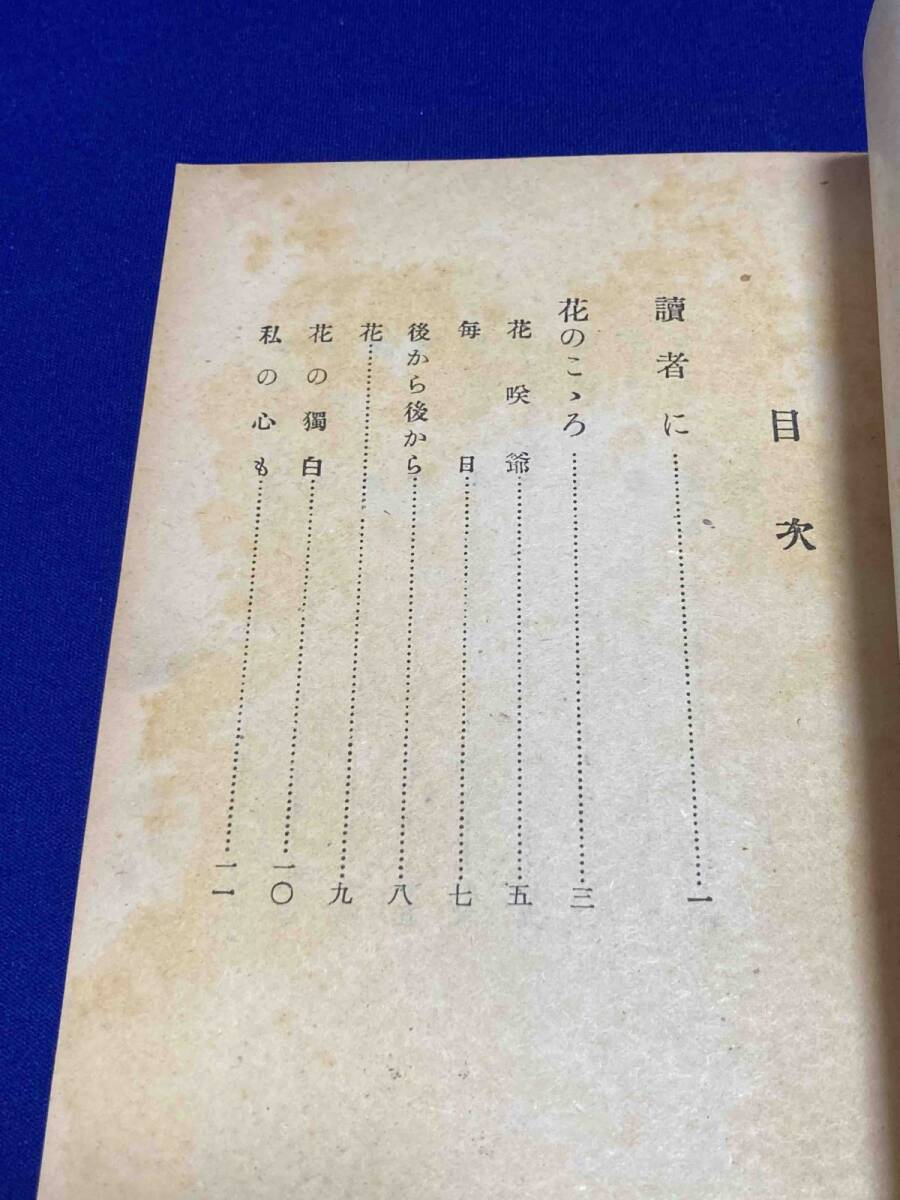 目次
讀者に……一
花のこゝろ……三
花咲爺……五
毎日……七
後から後から……八
花……九
花の獨白……一〇
私の心も……一一